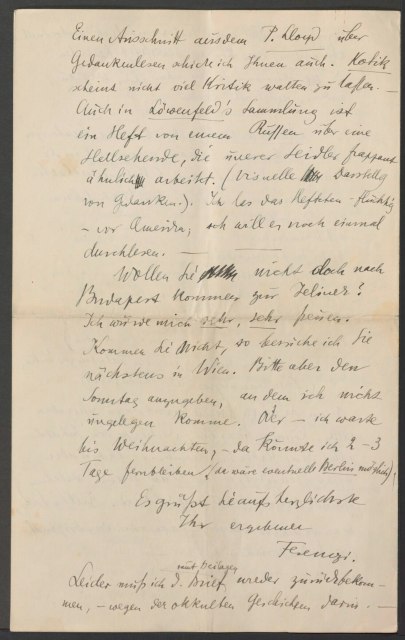 Einen Ausschnitt aus dem P. Lloyd über
Gedankenlesen schicke ich Ihnen auch. Kotik
scheint nicht viel Kritik walten zu lassen. —
Auch in Löwenfeld's Sammlung ist
ein Heft von einem Russen über eine
Hellsehende, die unserer Seidler frappant
ähnlich arbeitet. (Visuelle Darstellg
von Gedanken). Ich las das Heftchen flüchtig
– vor Amerika; ich will es noch einmal
durchlesen. —
Wollen Sie nicht doch nach
Budapest kommen zur Jelinek?
Ich würde mich sehr, sehr freuen.
Kommen Sie nicht, so besuche ich Sie
nächstens in Wien. Bitte aber den
Sonntag anzugeben, an dem ich nicht
ungelegen komme. Oder – ich warte
bis Weihnachten, – da könnte ich 2–3
Tage fernbleiben (da wäre eventuell Berlin möglich);
Es grüßt Sie aufs herzlichste
Ihr ergebener
Ferenczi.
mit Beilagen
Leider muß ich d. Brief wieder zurückbekom-
men, – wegen der okkulten Geschichten darin. —